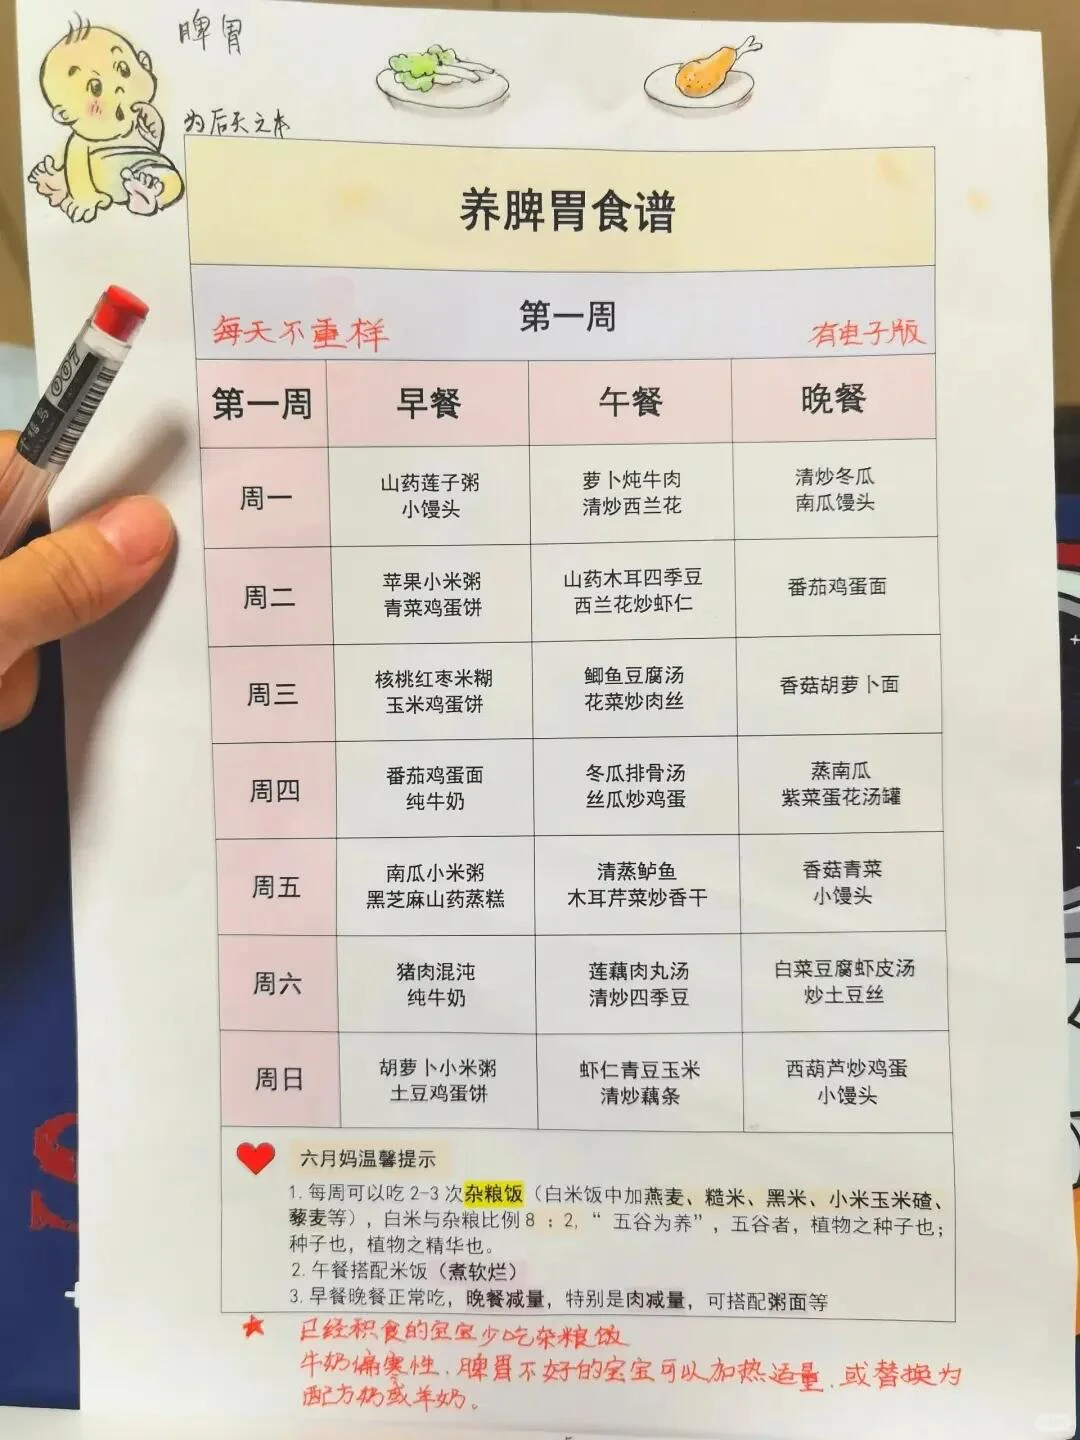 脾胃
为后天之本
养脾胃食谱
每天不重样 第一周 有电子版
第一周 早餐 午餐 晚餐
周一
山药莲子粥
小馒头
萝卜炖牛肉
清炒西兰花
清炒冬瓜
南瓜馒头
周二
苹果小米粥
青菜鸡蛋饼
山药木耳四季豆
西兰花炒虾仁
番茄鸡蛋面
周三
核桃红枣米糊
玉米鸡蛋饼
鲫鱼豆腐汤
花菜炒肉丝
香菇胡萝卜面
周四
番茄鸡蛋面
纯牛奶
冬瓜排骨汤
丝瓜炒鸡蛋
蒸南瓜
紫菜蛋花汤罐
周五
南瓜小米粥
黑芝麻山药蒸糕
清蒸鲈鱼
木耳芹菜炒香干
香菇青菜
小馒头
周六
猪肉混沌
纯牛奶
莲藕肉丸汤
清炒四季豆
白菜豆腐虾皮汤
炒土豆丝
周日
胡萝卜小米粥
土豆鸡蛋饼
虾仁青豆玉米
清炒藕条
西葫芦炒鸡蛋
小馒头
六月妈温馨提示
1.每周可以吃2-3次杂粮饭（白米饭中加燕麦、糙米、黑米、小米玉米碴、
藜麦等），白米与杂粮比例8：2,“五谷为养”，五谷者，植物之种子也；
种子也，植物之精华也。
2.午餐搭配米饭（煮软烂）
3.早餐晚餐正常吃，晚餐减量，特别是肉减量，可搭配粥面等
已经积食的宝宝少吃杂粮饭
牛奶偏寒性.脾胃不好的宝宝可以加热适量.或替换为
配方奶或羊奶。
007